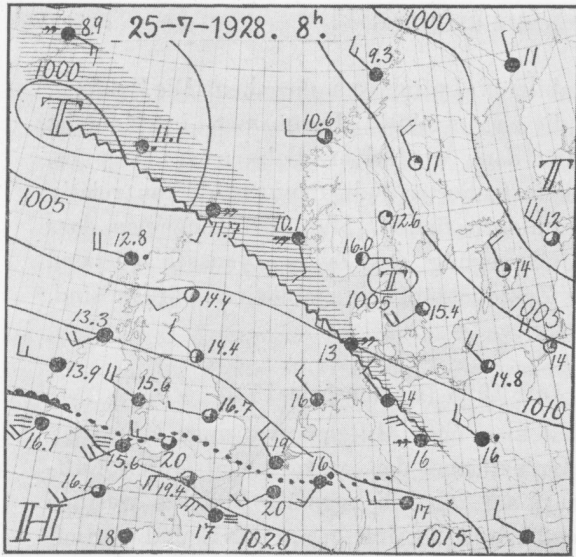 25-7-1928. 8h.
1000
8.9
9.3
11
1000
T
11.1
10.6
11
T
1005
11.7
10.1
12.6
12
12.8
16.0
T
14
14.4
1005
15.4
1005
13.3
14.4
13
14
13.9
15.6
16.7
16
14
14.8
1010
16.1
15.6
20
19
16
16
16
16.1
19.4
20
17
H
18
17
1020
1015